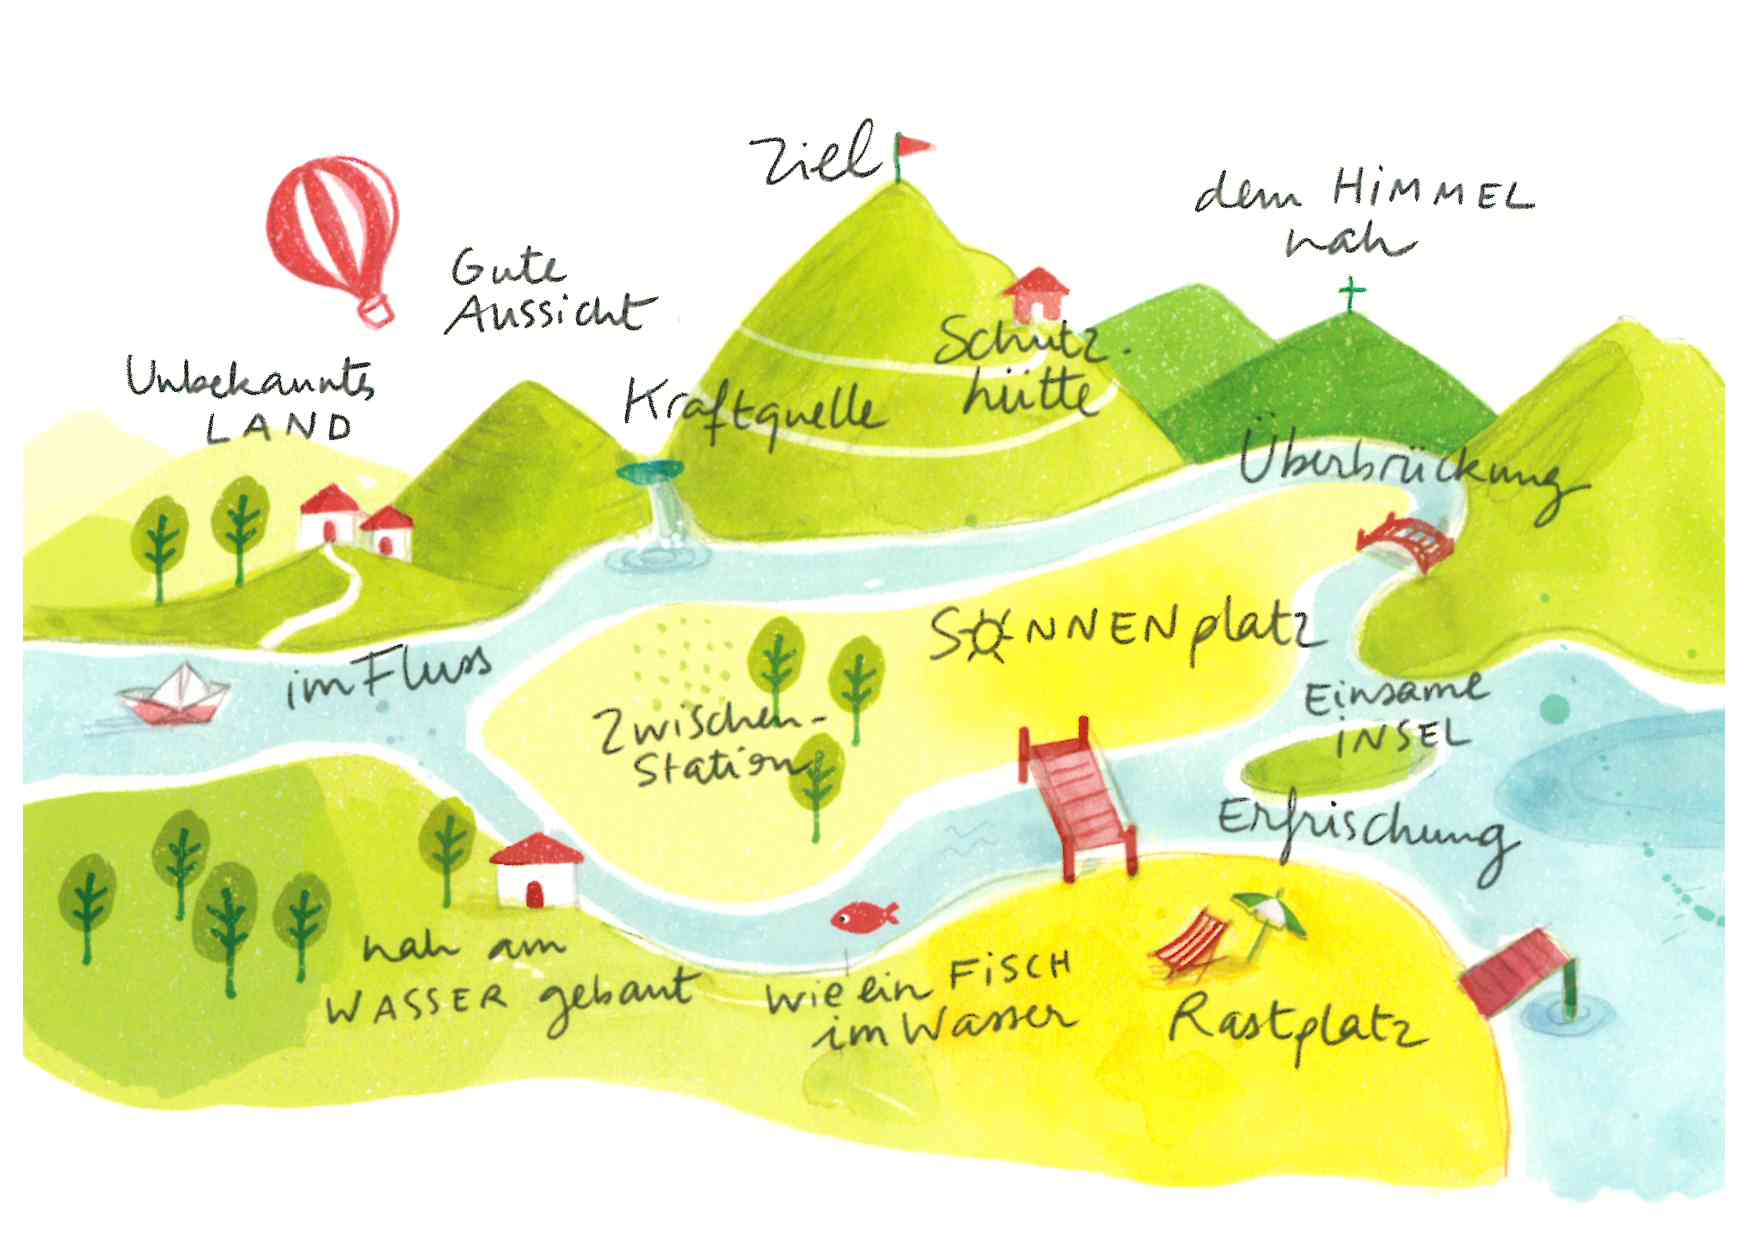 Ziel
dem HiMMEL
nah
Gute
Aussicht
Unbekanntes
LAND
Kraftquelle
Schutz-
hütte
Überbrückung
SONNENplatz
im Fluss
Zwischen-
Station
Einsame
iNSEL
Erfrischung
nah am
WASSER gebaut
wie ein FiSCH
im Wasser
Rastplatz